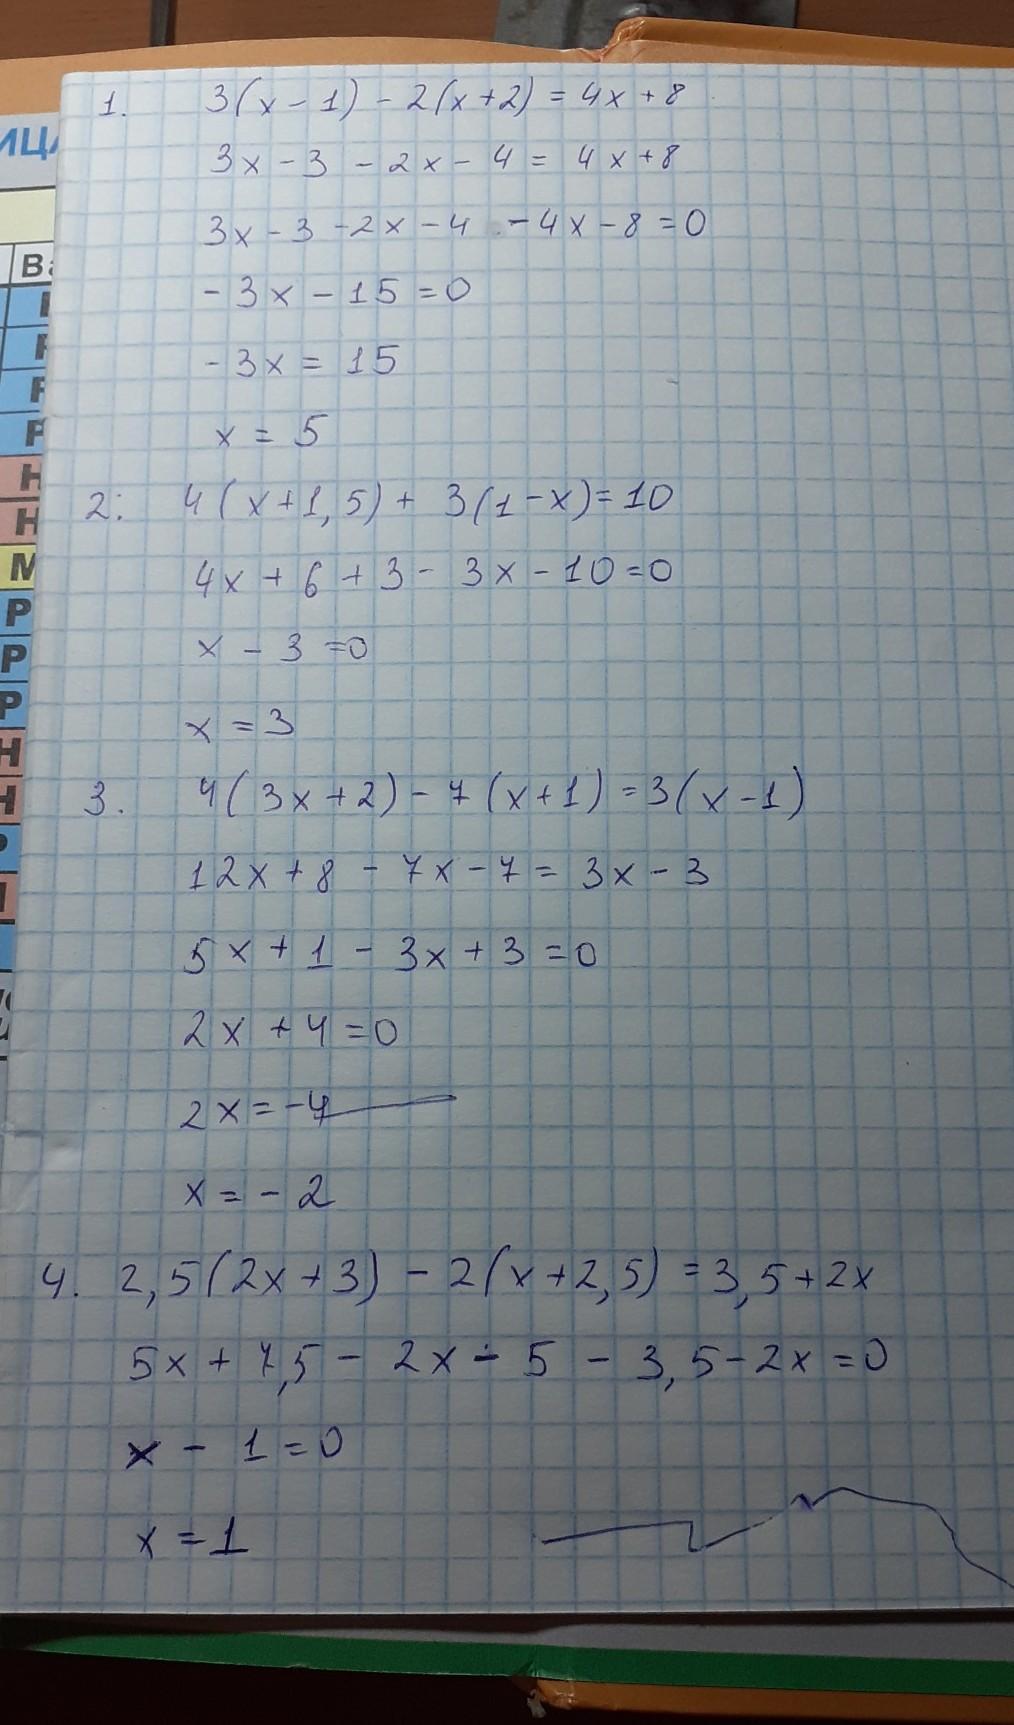 1. 3(x-1) - 2(x+2) = 4x+8
3x-3 - 2x-4 = 4x+8
3x-3-2x-4 -4x-8=0
-3x-15=0
-3x=15
x=5
2: 4(x+1,5)+3(1-x)=10
4x+6+3-3x-10=0
x-3=0
x=3
3. 4(3x+2)-7(x+1)=3(x-1)
12x+8-7x-7=3x-3
5x+1-3x+3=0
2x+4=0
2x=-4
x=-2
4. 2,5(2x+3)-2(x+2,5)=3,5+2x
5x+7,5-2x-5-3,5-2x=0
x-1=0
x=1
Н
Н
М
Р
Р
Р
Н